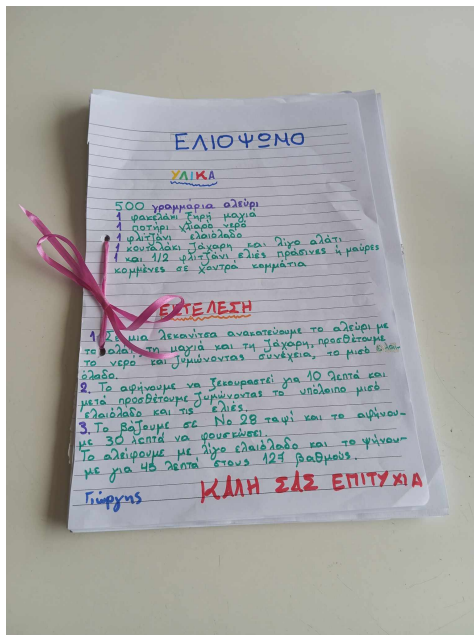 ΕΛΙΟΨΩΜΟ
ΥΛΙΚΑ
500 γραμμάρια αλεύρι
1 φακελάκι ξηρή μαγιά
1 ποτήρι χλιαρό νερό
1 φλιτζάνι ελαιόλαδο
1 κουταλάκι ζάχαρη και λίγο αλάτι
1 και 1/2 φλιτζάνι ελιές πράσινες ή μαύρες
κομμένες σε χοντρά κομμάτια
ΕΚΤΕΛΕΣΗ
1. Σε μια λεκανίτσα ανακατεύουμε το αλεύρι με
το αλάτι, τη μαγιά και τη ζάχαρη, προσθέτουμε
το νερό και ζυμώνοντας συνέχεια, το μισό ελαι-
όλαδο.
2. Το αφήνουμε να ξεκουραστεί για 10 λεπτά και
μετά προσθέτουμε ζυμώνοντας το υπόλοιπο μισό
ελαιόλαδο και τις ελιές.
3. Το βάζουμε σε Νο 28 ταψί και το αφήνου-
με 30 λεπτά να φουσκώσει.
Το αλείφουμε με λίγο ελαιόλαδο και το ψήνου-
με για 45 λεπτά στους 127 βαθμούς.
Γιώργης
ΚΑΛΗ ΣΑΣ ΕΠΙΤΥΧΙΑ